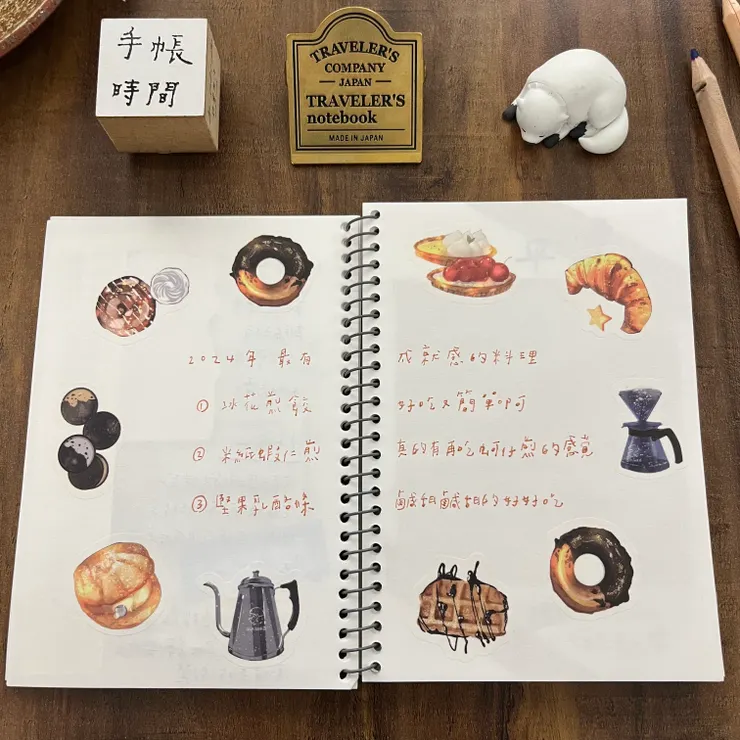 手帳
時間
TRAVELER'S
COMPANY
JAPAN
TRAVELER'S
notebook
MADE IN JAPAN
2024年 最有 成就感的料理
① 冰花煎餃 好吃又簡單即可
② 米紙蝦仁煎 真的有再吃蚵仔煎的感覺
③ 堅果乳酪條 鹹甜鹹甜的好好吃